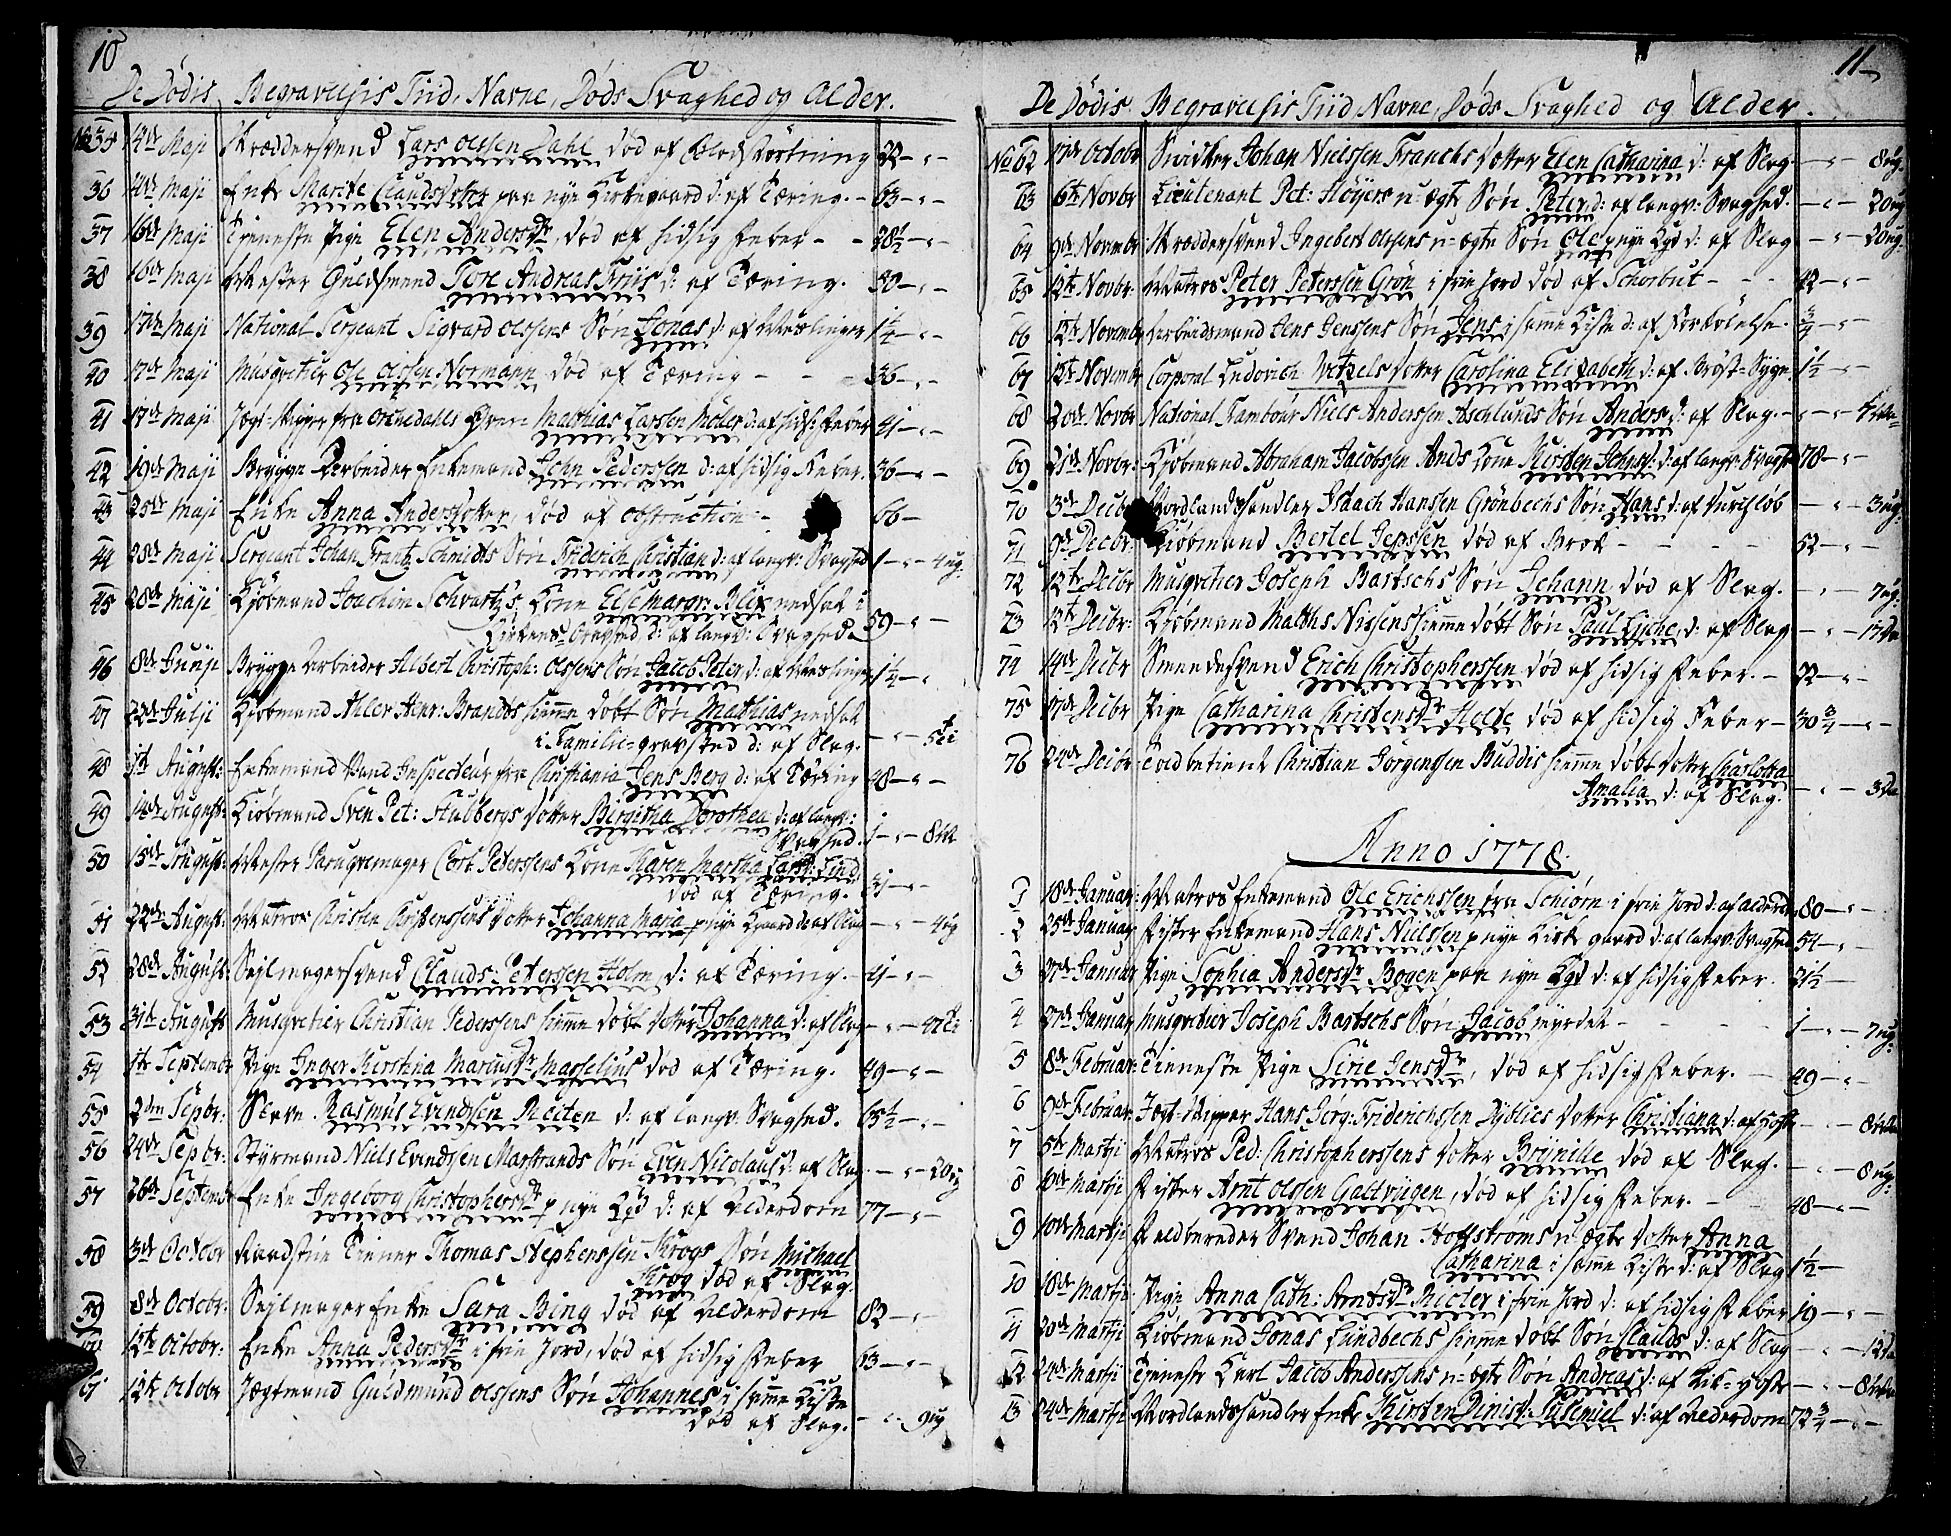 10
De Dödis Begravelsis Tiid, Navne, Döds Svaghed og Alder.
No 35 14de Maji Skræddersvend Lars Olssen Dahl död af Blodstörtning 22 - " -
36 14de Maji Enke Marite Claudsdotter paa nye Kirkegaard d: af Tæring. - 63 - " -
37 16de Maji Tieneste Pige Elen Andersdr, död af hidsig Feber - - 28½ - " -
38 16de Maji Mester Guldsmed Tore Andreas Friis d: af Tæring. 50 - " -
39 17de Maji National Sergeant Sigvard Olssens Sön Jonas d: af Meslinger 1¼ - " -
40 17de Maji Musqvetier Ole Olssen Normann död af Tæring - - - 36 - " -
41 17de Maji Jægt-Skiper fra Orchedahls Ören Mathias Larssen Möller d: af hids: Feber 41 - " -
42 19de Maji Brygge Arbeider Enkemand John Pederssen d: af hidsig Feber. 36 - " -
43 25de Maji Enke Anna Andersdotter, död af obstruction - 66 -
44 28de Maji Sergeant Johan Frantz Schmidts Sön Friderich Christian d: af langv: Svaghed 1 - " - 4 ug:
45 28de Maji Kjöbmand Joachim Schvartz's Kone Else Margr: Blix nedsat i
Kirkens Gravsted d: af langv: Svaghed. 59 - " -
46 8de Junji Brygge Arbeider Albert Christoph: Olssens Sön Jacob Peter d: af Meslinger 1¼ - "
47 22de Julji Kjöbmand Ahler Henr: Brandts hiemme döbt Sön Mathias nedsat
i Familie-gravsted d: af Slag. - " - 5 ti
48 1te August: Enkemand Vand Inspecteur fra Christiania Jens Berg d: af Tæring 48 - " -
49 14de August: Kjöbmand Sven Pet: Hulbergs dotter Birgitha Dorothea d: af langv:
Svaghed. 1 - " - 8
50 15de August: Mester Paruqvemager Carl Peterssens Kone Karen Martha Larsd: Lind
död af Tæring.
51 22de August: Matros Christen Christenssens dotter Johanna Maria p nye Kgaard d: af Slag - " - 4 ug
52 28de August: Sejlmagersvend Clauds: Peterssen Holm d: af Tæring. 41 - " -
53 31te August Musqvetier Christian Pederssens hiemme döbt dotter Johanna d: af Slag - " -
54 1te Septembr Pige Inger Kirstina Mariusdr Masselius död af Tæring. 49 - " -
55 2den Sepbr: Slave Rasmus Evendssen Reiten d: af langv: Svaghed. 65½ - " -
56 24de Sepbr: Styrmand Niels Evendssen Marstrands Sön Even Nicolaus d: af Slag. - " - 20 ug
57 26de Septembr Enke Ingeborg Christophersdr p nye Kgd d: af Alderdom 77 - " -
58 3de Octobr Raadstue Tienner Thomas Stephenssen Krogs Sön Michael
Krog död af Slag.
59 8de Octobr: Sejlmager Enke Sara Bing död af Alderdom 82 - " -
60 12te Octobr: Enke Anna Pedersdr i frie Jord, död af hidsig Feber 63 - " -
61 12te Octobr Jægtmand Guldmund Olssens Sön Johannes i samme Kiste
död af Slag. - " - 9 ug
11
De Dödis Begravelsis Tiid Navne, Döds Svaghed og Alder.
No 62 17de Octobr Snidker Johan Nielssen Francks dotter Elen Catharina d: af Slag. - " - 8 ug.
63 6te Novbr Lieutenant Pet: Höyers u-ægte Sön Peter d: af langv: Svaghed. - " - 20 ug
64 9de Novembr: Skræddersvend Ingebert Olssens u-ægte Sön Ole p nye Kgd d: af Slag - " - 20 ug.
65 12te Novbr: Matros Peter Peterssen Grön i frie Jord död af Schorbut - - - 42 - " -
66 12te Novembr Arbeidsmand Jens Jenssens Sön Jens i samme Kiste d: af Forkölelse. ¾ - " -
67 12te Novembr Corporal Ludovich Wetzels dotter Carolina Elisabeth d: af Bröst-Syge. 1½ - "
68 20de Novbr National Tambour Niels Anderssen Aschlunds Sön Anders d: af Slag. - " -
69 21de Novbr: Kjöbmand Abraham Jacobssen Ands Kone Kirsten Johnsd: d: af langv: Svagh 78 - " -
70 3de Decbr Nordlandshandler Isaach Hanssen Grönbechs Sön Hans d: af Durchlöb - " - 3 ug:
71 9de Decbr: Kjöbmand Bertel Jepssen död af Brok - - - - 52 - " -
72 12te Decbr Musqvetier Joseph Bartschs Sön Johann, död af Slag. - " - 7 ug.
73 12te Decbr: Kjöbmand Matths Nissens hiemme döbt Sön Paul Lyche, d: af Slag - " - 17 da
74 14de Decbr Smeedesvend Erich Christopherssen död af hidsig Feber. - 22 - " -
75 17de Decbr Pige Catharina Christensdr Holte död af hidsig Feber - 30¾ - " -
76 24de Decbr Toldbetient Christian Jörgenssen Buddis hiemme döbt dotter Charlotta
Amalia d: af Slag. - " - 3 da
Anno 1778.
1 18de Januar: Matros Enkemand Ole Erichssen fra Schiörn i frie Jord d: af alderdom 80 - " -
2 25de Januar Fisker Enkemand Hans Nielssen p nye Kirkgaard d: af langv: Svaghed 54 - " -
3 27de Januar Pige Sophia Andersdr Bogen paa nye Kgd d: af hidsig Feber. 21½ -
4 27de Januar Musqvetier Joseph Bartschs Sön Jacob myrdet - - - - 1 - " - 7 ug.
5 8de Februar: Tieneste Pige Sirie Jensdr, död af hidsig Feber. - 49 - " -
6 9de Februar: Jægt-Skipper Hans Jörg: Friderichssen Dyblies dotter Christiana d: af Hoste - " -
7 5te Martji Matros Ped: Christopherssens dotter Brynille död af Slag. - " - 8 ug:
8 10de Martji Fisker Arnt Olssen Galtvigen, död af hidsig Feber. - 48 - " -
9 10de Martji Feldbereder Svend Johan Hoffströms u-ægte dotter Anna
Catharina i samme Kiste d: af Slag 1½ -
10 18de Martji Pige Anna Cath: Arntsdr Richter i frie Jord d: af hidsig Feber 19 - " -
11 20de Martji Kjöbmand Jonas Lundbechs hiemme döbt Sön Clauds d: af Slag - " - 12 da
12 24de Martji Tieneste Karl Jacob Anderssens u-ægte Sön Andreas d: af Kik-Hoste - " -
13 24de Martji Nordlandshandler Enke Kirsten Dinisd: Tusemiel d: af Alderdom 72¾ - " -